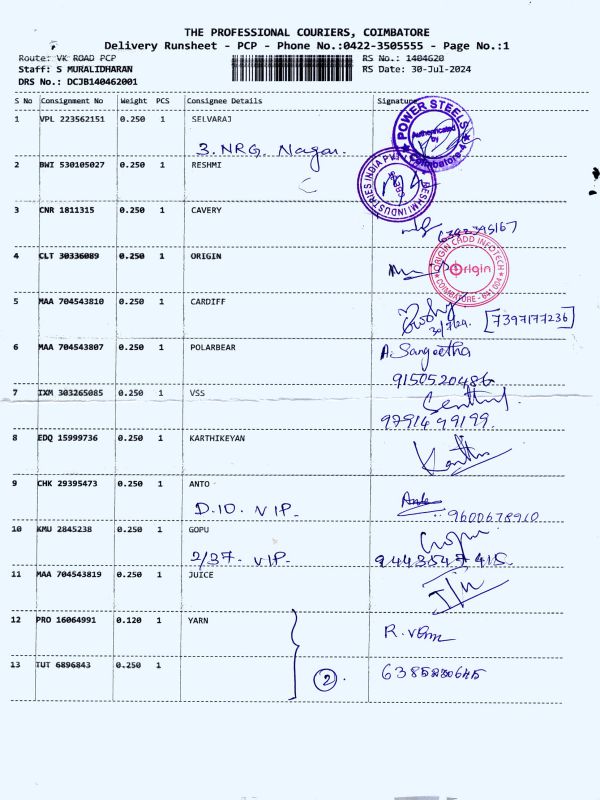 THE PROFESSIONAL COURIERS, COIMBATORE
Delivery Runsheet - PCP - Phone No.:0422-3505555 - Page No.:1
Route: VK ROAD PCP RS No.: 1404620
Staff: S MURALIDHARAN RS Date: 30-Jul-2024
DRS No.: DCJB140462001
S No Consignment No Weight PCS Consignee Details Signature
1 VPL 223562151 0.250 1 SELVARAJ
POWER STEELS
Authenticated by
Coimbatore-4
3. NRG. Nagar.
2 BWI 530105027 0.250 1 RESHMI
RESHMI INDUSTRIES INDIA PVT
3 CNR 1811315 0.250 1 CAVERY
4 CLT 30336089 0.250 1 ORIGIN
ORIGIN CADD INFOTECH
Origin
COIMBATORE - 641 004
5 MAA 704543810 0.250 1 CARDIFF
30/7/24. [7397177236]
6 MAA 704543807 0.250 1 POLARBEAR A. Sangeetha
9150520486
7 IXM 303265085 0.250 1 VSS Senthil
9791499199.
8 EDQ 15999736 0.250 1 KARTHIKEYAN
9 CHK 29395473 0.250 1 ANTO
D.10. VIP. 9600678910
10 KMU 2845238 0.250 1 GOPU Gopu
2/37. VIP. 9443547415.
11 MAA 704543819 0.250 1 JUICE
12 PRO 16064991 0.120 1 YARN
13 TUT 6896843 0.250 1
2.